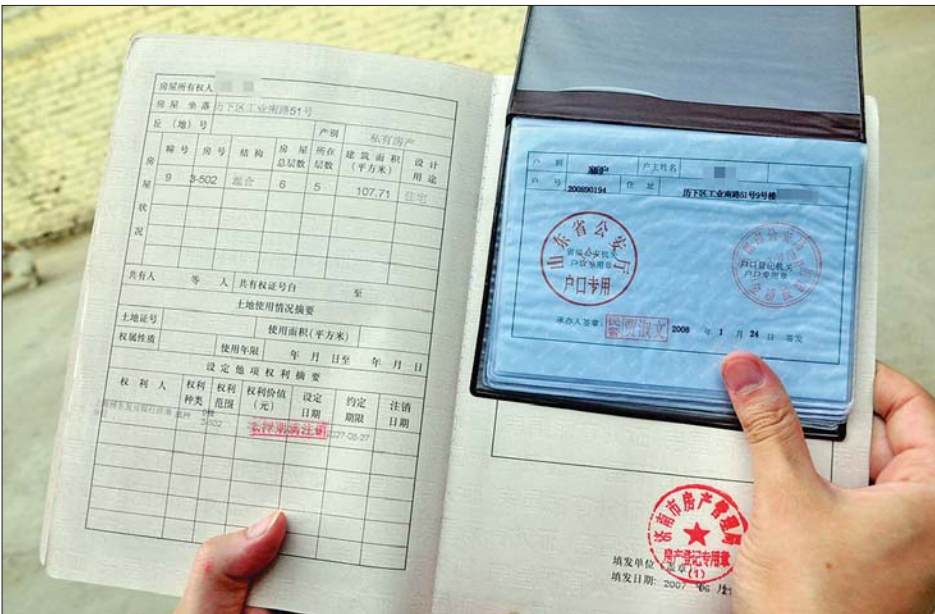 房屋所有权人
房屋坐落 历下区工业南路51号
丘（地）号 产别 私有房产
房屋状况
幢号 房号 结构 房屋总层数 所在层数 建筑面积（平方米） 设计用途
9 3-502 混合 6 5 107.71 住宅
共有人 等 人 共有权证号自 至
土地使用情况摘要
土地证号 使用面积(平方米)
权属性质 使用年限 年 月 日至 年 月 日
设定他项权利摘要
权利人 权利种类 权利范围 权利价值（元） 设定日期 约定期限 注销日期
3-502
2027-06-27
户别 户主姓名
户号 200890194 住址 历下区工业南路51号9号楼
山东省公安厅
户口专用
省级公安机关
户口专用章
户口登记机关
户口专用章
承办人签章： 2008 年 1 月 24 日 签发
济南市房产管理局
房产登记专用章
(1)
填发单位（盖章）
填发日期: 2007